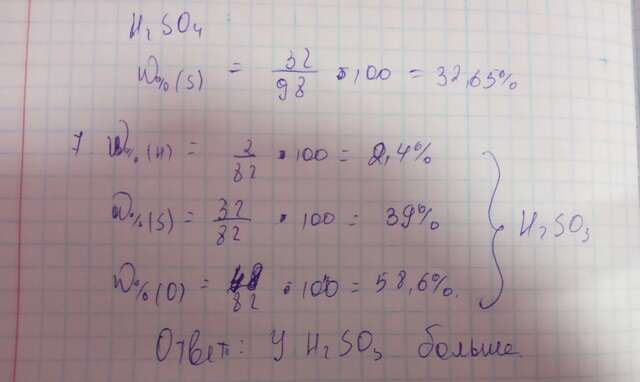 H₂SO₄
W%(S) = 32/98 · 100 = 32,65%
7. W%(H) = 2/82 · 100 = 2,4%
W%(S) = 32/82 · 100 = 39%
H₂SO₃
W%(O) = 48/82 · 100 = 58,6%.
Ответ: У H₂SO₃ больше.